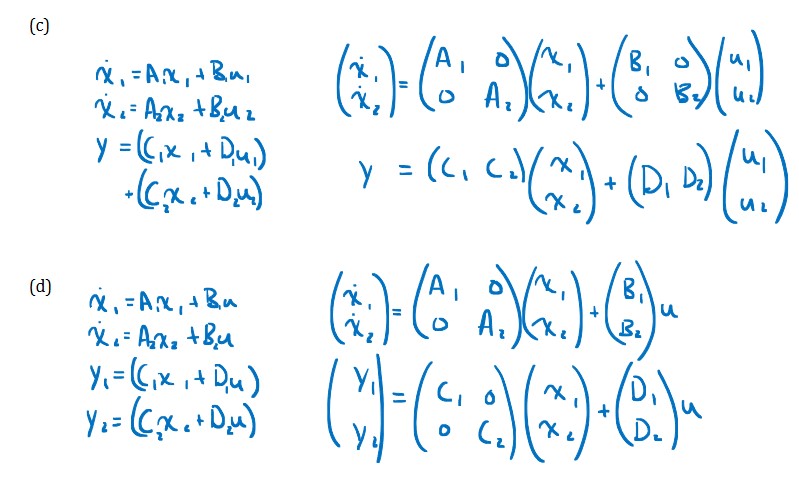 (c)
ẋ₁ = A₁x₁ + B₁u₁
ẋ₂ = A₂x₂ + B₂u₂
y = (C₁x₁ + D₁u₁)
+ (C₂x₂ + D₂u₂)
(ẋ₁ ; ẋ₂) = (A₁ 0 ; 0 A₂)(x₁ ; x₂) + (B₁ 0 ; 0 B₂)(u₁ ; u₂)
y = (C₁ C₂)(x₁ ; x₂) + (D₁ D₂)(u₁ ; u₂)
(d)
ẋ₁ = A₁x₁ + B₁u
ẋ₂ = A₂x₂ + B₂u
y₁ = (C₁x₁ + D₁u)
y₂ = (C₂x₂ + D₂u)
(ẋ₁ ; ẋ₂) = (A₁ 0 ; 0 A₂)(x₁ ; x₂) + (B₁ ; B₂)u
(y₁ ; y₂) = (C₁ 0 ; 0 C₂)(x₁ ; x₂) + (D₁ ; D₂)u